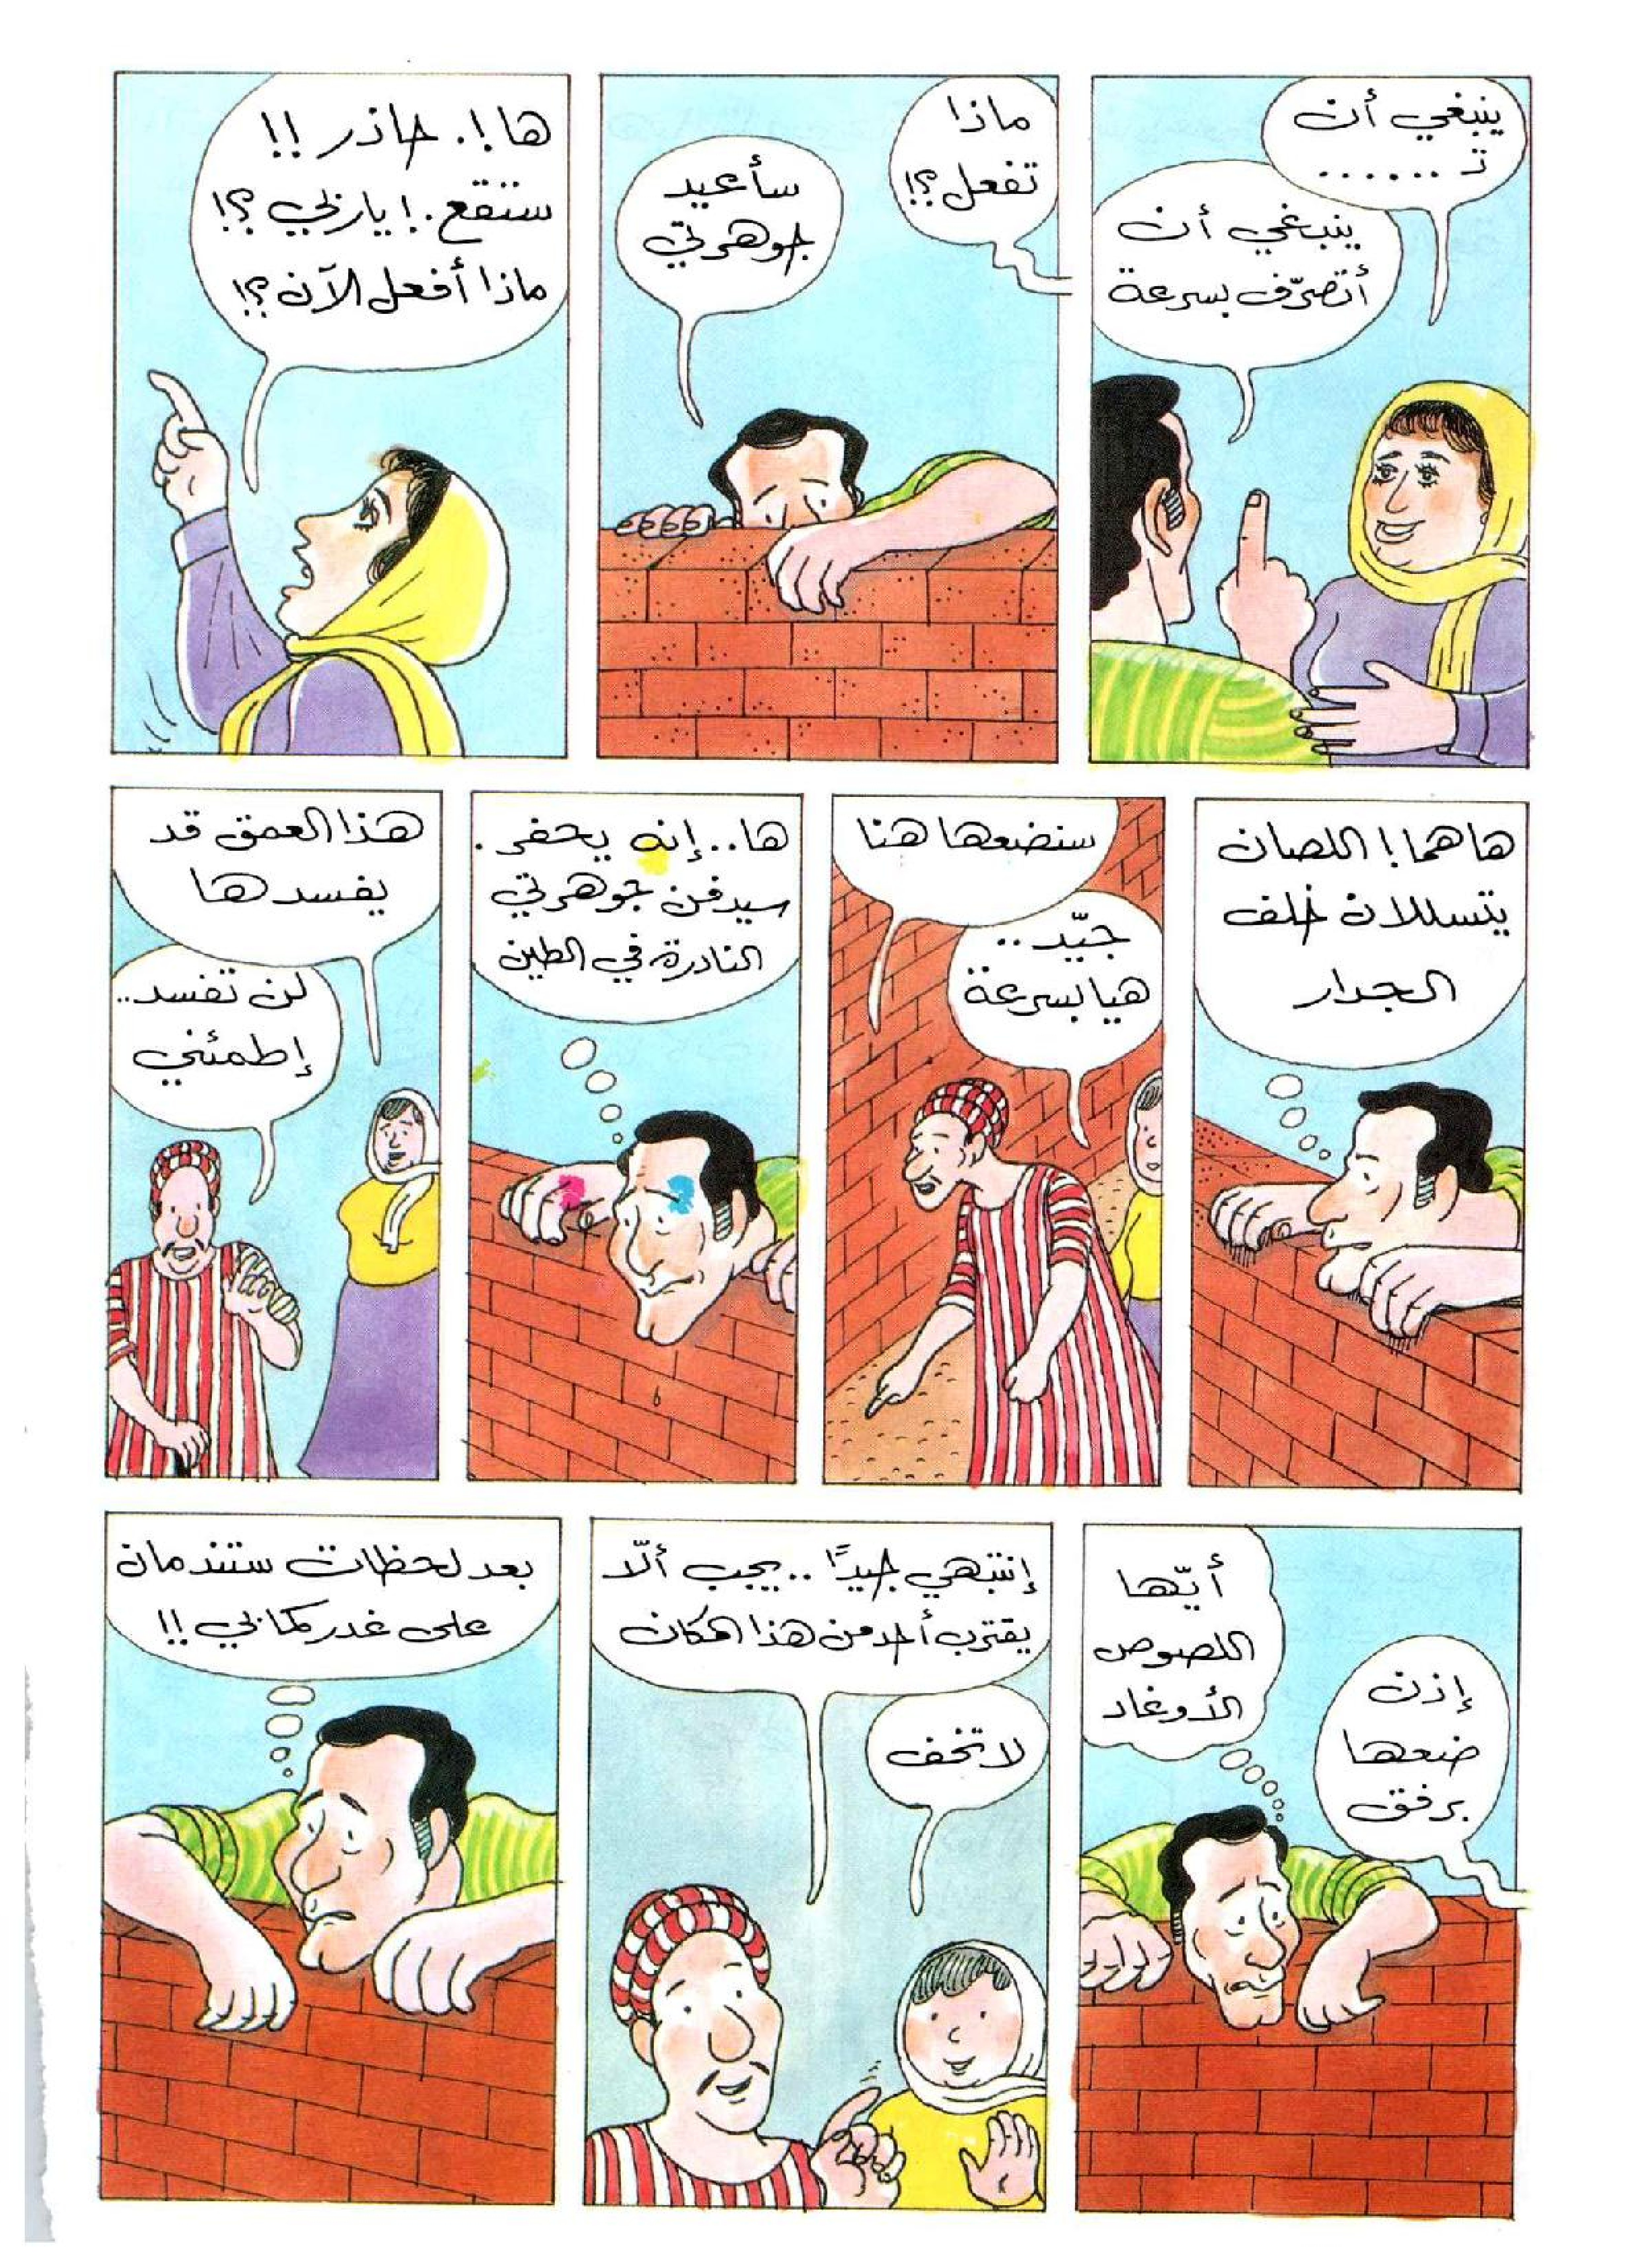 ينبغي أن
تـ ......
ينبغي أن
أتصرّف بسرعة
ماذا
تفعل؟!
سأعيد
جوهرتي
ها!. حاذر!!
ستقع.! ياربي؟!
ماذا أفعل الآن؟!
هاهما! اللصان
يتسللان خلف
الجدار
سنضعها هنا
جيّد..
هيا بسرعة
ها.. إنه يحفر.
سيدفن جوهرتي
النادرة في الطين
هذا العمق قد
يفسدها
لن تفسد..
إطمئني
إذن
ضعها
برفق
أيّها
اللصوص
الأوغاد
إنتبهي جيدًا.. يجب ألّا
يقترب أحد من هذا المكان
لا تخف
بعد لحظات ستندمان
على غدركما بي!!